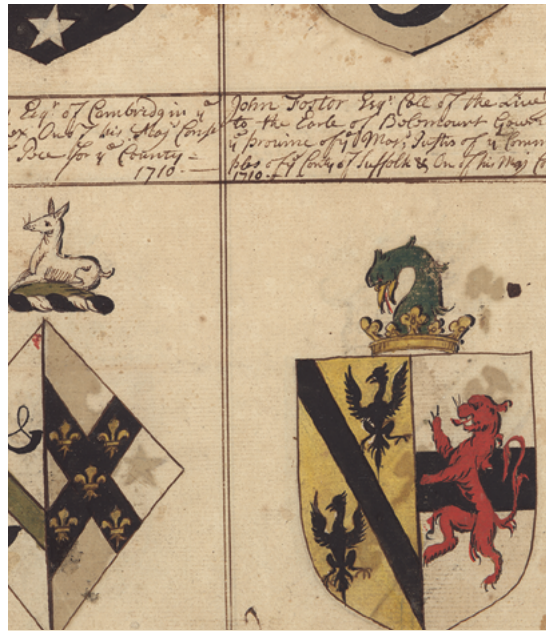 Esqr of Cambridg in ye
ex. One of his Maj
Pece for ye County
1710.
John Foster Esqr Coll of the Live
to the Earle of Belomount Gover
ye Province of ye Mas; Justis of ye Comm
ples of ye County of Suffolk & On of his Maj
1710.